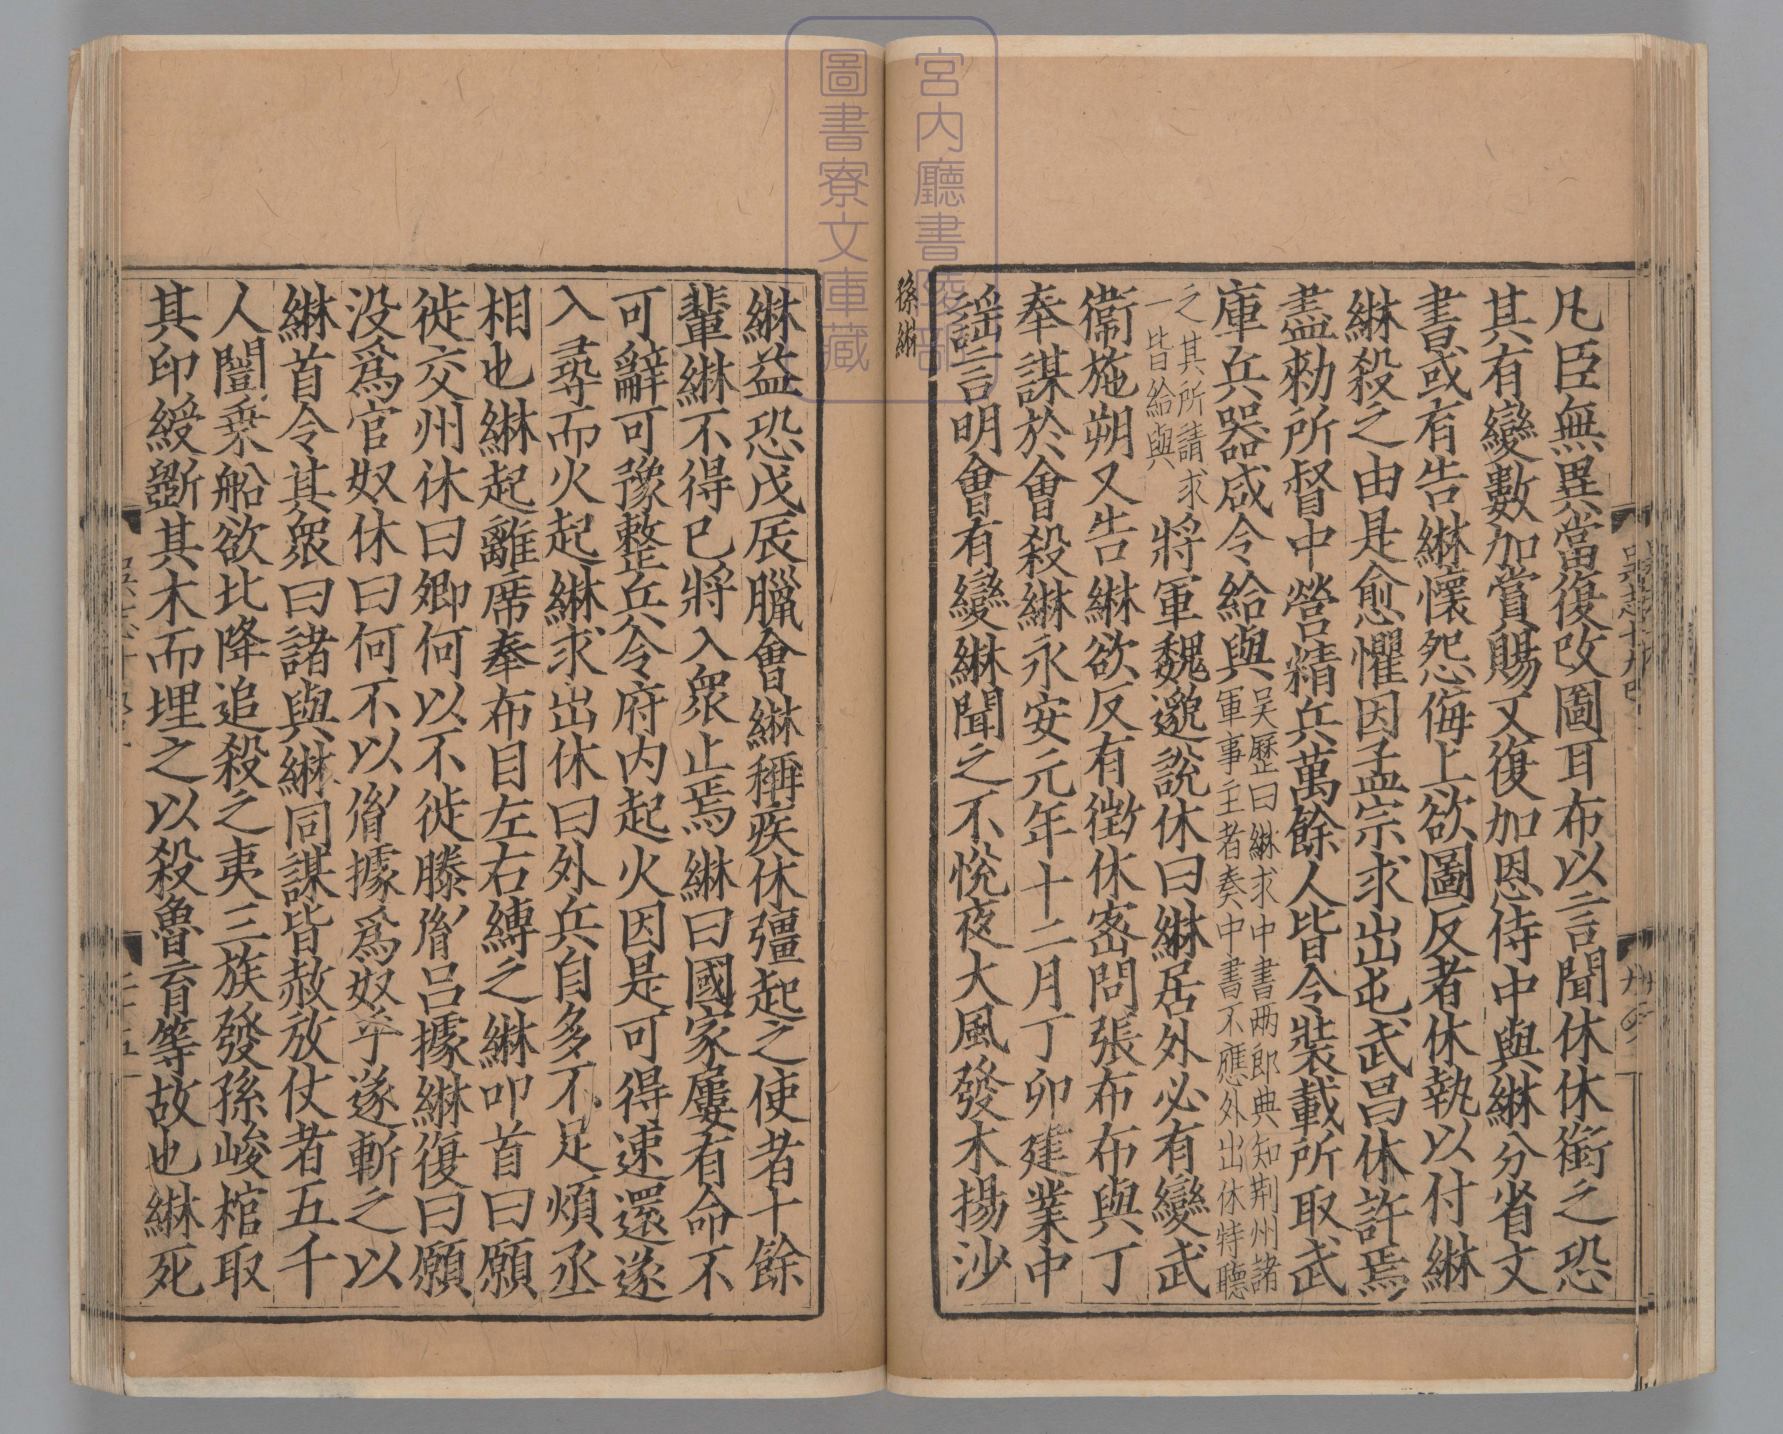 凡臣無異當復改圖耳布以言聞休休銜之恐
其有變數加賞賜又復加恩侍中與綝分省文
書或有告綝懷怨侮上欲圖反者休執以付綝
綝殺之由是愈懼因孟宗求出屯武昌休許焉
盡勑所督中營精兵萬餘人皆令裝載所取武
庫兵器咸令給與
吳歷曰綝求中書兩郎典知荆州諸
軍事主者奏中書不應外出休特聽
之其所請求
一皆給與
將軍魏邈說休曰綝居外必有變武
衛施朔又告綝欲反有徵休密問張布布與丁
奉謀於會殺綝永安元年十二月丁卯建業中
謡言明會有變綝聞之不悅夜大風發木揚沙
孫綝
綝益恐戊辰臘會綝稱疾休彊起之使者十餘
輩綝不得已將入衆止焉綝曰國家屢有命不
可辭可豫整兵令府內起火因是可得速還遂
入尋而火起綝求出休曰外兵自多不足煩丞
相也綝起離席奉布目左右縛之綝叩首曰願
徙交州休曰卿何以不徙滕胤呂據綝復曰願
没爲官奴休曰何不以胤據爲奴乎遂斬之以
綝首令其衆曰諸與綝同謀皆赦放仗者五千
人闓乗船欲比降追殺之夷三族發孫峻棺取
其印綬斵其木而埋之以殺魯育等故也綝死
宮内廳書陵部
圖書寮文庫藏